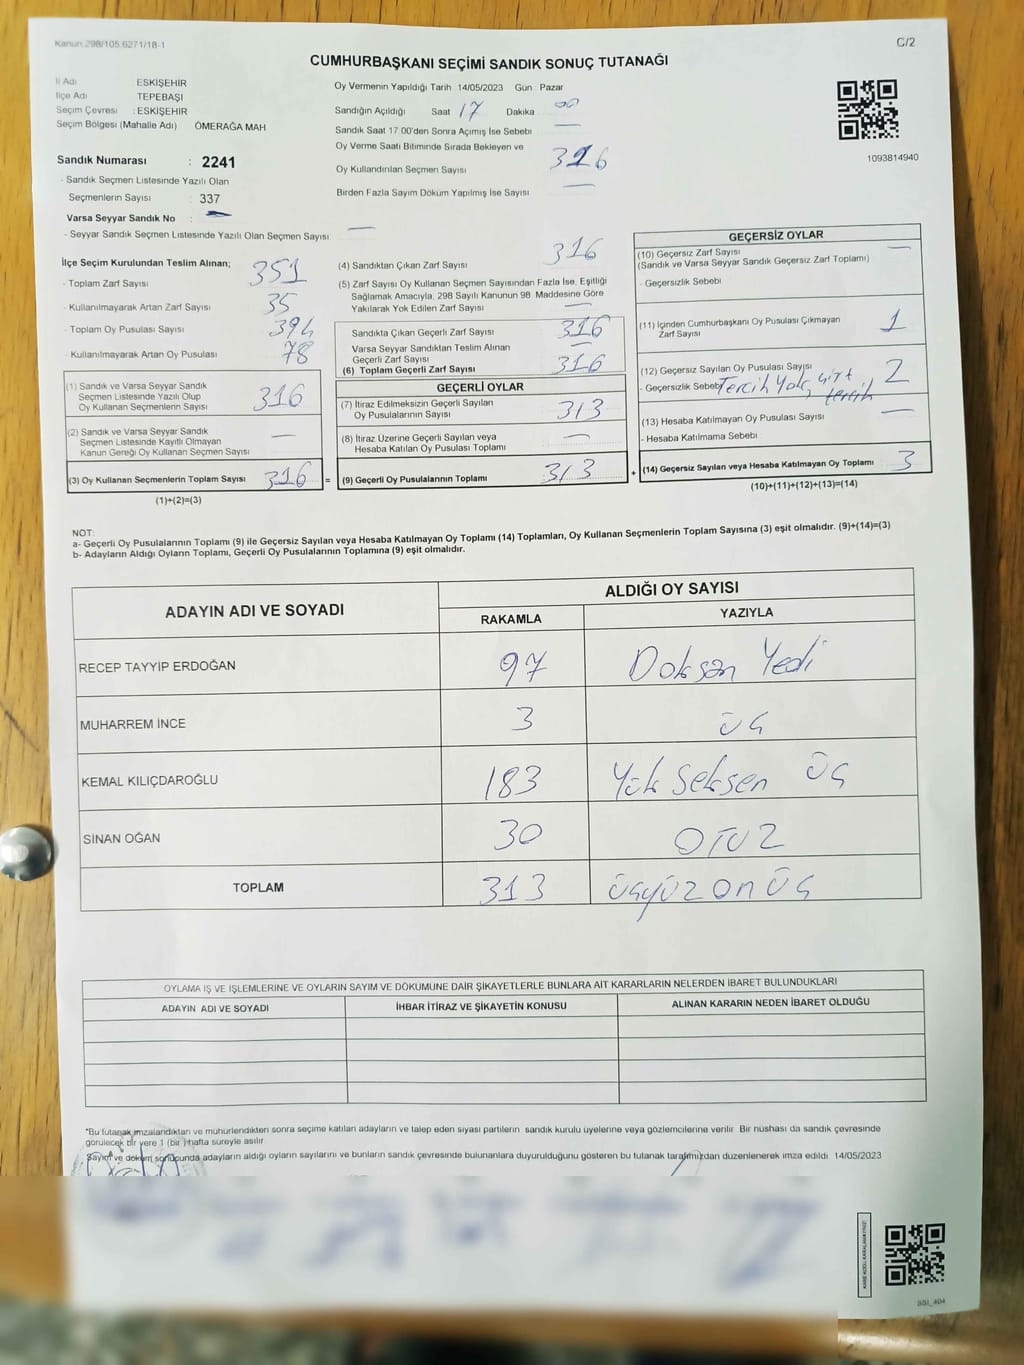 Kanun:298/105.6271/18-1
C/2
CUMHURBAŞKANI SEÇİMİ SANDIK SONUÇ TUTANAĞI
İl Adı ESKİŞEHİR
İlçe Adı TEPEBAŞI
Seçim Çevresi : ESKİŞEHİR
Seçim Bölgesi (Mahalle Adı) ÖMERAĞA MAH
Sandık Numarası : 2241
- Sandık Seçmen Listesinde Yazılı Olan
Seçmenlerin Sayısı : 337
Varsa Seyyar Sandık No :
- Seyyar Sandık Seçmen Listesinde Yazılı Olan Seçmen Sayısı:
Oy Vermenin Yapıldığı Tarih 14/05/2023 Gün Pazar
Sandığın Açıldığı Saat 17 Dakika 00
Sandık Saat 17.00'den Sonra Açımış İse Sebebi
Oy Verme Saati Bitiminde Sırada Bekleyen ve
Oy Kullandırılan Seçmen Sayısı 316
Birden Fazla Sayım Döküm Yapılmış İse Sayısı
1093814940
İlçe Seçim Kurulundan Teslim Alınan;
- Toplam Zarf Sayısı 351
- Kullanılmayarak Artan Zarf Sayısı 35
- Toplam Oy Pusulası Sayısı 394
- Kullanılmayarak Artan Oy Pusulası 78
(1) Sandık ve Varsa Seyyar Sandık
Seçmen Listesinde Yazılı Olup
Oy Kullanan Seçmenlerin Sayısı 316
(2) Sandık ve Varsa Seyyar Sandık
Seçmen Listesinde Kayıtlı Olmayan
Kanun Gereği Oy Kullanan Seçmen Sayısı
(3) Oy Kullanan Seçmenlerin Toplam Sayısı 316 =
(1)+(2)=(3)
(4) Sandıktan Çıkan Zarf Sayısı 316
(5) Zarf Sayısı Oy Kullanan Seçmen Sayısından Fazla İse, Eşitliği
Sağlamak Amacıyla, 298 Sayılı Kanunun 98. Maddesine Göre
Yakılarak Yok Edilen Zarf Sayısı
Sandıkta Çıkan Geçerli Zarf Sayısı 316
Varsa Seyyar Sandıktan Teslim Alınan
Geçerli Zarf Sayısı
(6) Toplam Geçerli Zarf Sayısı 316
GEÇERLİ OYLAR
(7) İtiraz Edilmeksizin Geçerli Sayılan
Oy Pusulalarının Sayısı 313
(8) İtiraz Üzerine Geçerli Sayılan veya
Hesaba Katılan Oy Pusulası Toplamı
(9) Geçerli Oy Pusulalarının Toplamı 313 +
GEÇERSİZ OYLAR
(10) Geçersiz Zarf Sayısı
(Sandık ve Varsa Seyyar Sandık Geçersiz Zarf Toplamı)
- Geçersizlik Sebebi
(11) İçinden Cumhurbaşkanı Oy Pusulası Çıkmayan
Zarf Sayısı 1
(12) Geçersiz Sayılan Oy Pusulası Sayısı 2
- Geçersizlik Sebebi Tercih Yok, çift
tercih
(13) Hesaba Katılmayan Oy Pusulası Sayısı
- Hesaba Katılmama Sebebi
(14) Geçersiz Sayılan veya Hesaba Katılmayan Oy Toplamı 3
(10)+(11)+(12)+(13)=(14)
NOT:
a- Geçerli Oy Pusulalarının Toplamı (9) ile Geçersiz Sayılan veya Hesaba Katılmayan Oy Toplamı (14) Toplamları, Oy Kullanan Seçmenlerin Toplam Sayısına (3) eşit olmalıdır. (9)+(14)=(3)
b- Adayların Aldığı Oyların Toplamı, Geçerli Oy Pusulalarının Toplamına (9) eşit olmalıdır.
ADAYIN ADI VE SOYADI
ALDIĞI OY SAYISI
RAKAMLA YAZIYLA
RECEP TAYYİP ERDOĞAN 97 Doksan Yedi
MUHARREM İNCE 3 üç
KEMAL KILIÇDAROĞLU 183 Yüz seksen üç
SİNAN OĞAN 30 OTUZ
TOPLAM 313 üçyüz on üç
OYLAMA İŞ VE İŞLEMLERİNE VE OYLARIN SAYIM VE DÖKÜMÜNE DAİR ŞİKAYETLERLE BUNLARA AİT KARARLARIN NELERDEN İBARET BULUNDUKLARI
ADAYIN ADI VE SOYADI İHBAR İTİRAZ VE ŞİKAYETİN KONUSU ALINAN KARARIN NEDEN İBARET OLDUĞU
"Bu tutanak imzalandıktan ve mühürlendikten sonra seçime katılan adayların ve talep eden siyasi partilerin sandık kurulu üyelerine veya gözlemcilerine verilir. Bir nüshası da sandık çevresinde
görülecek bir yere 1 (bir) hafta süreyle asılır
Sayım ve döküm sonucunda adayların aldığı oyların sayılarını ve bunların sandık çevresinde bulunanlara duyurulduğunu gösteren bu tutanak tarafımızdan düzenlenerek imza edildi. 14/05/2023